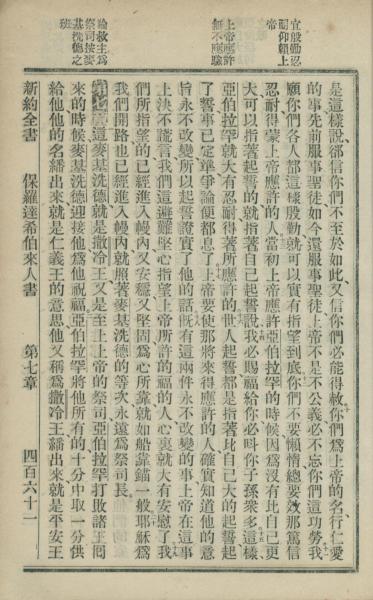 宜殷勤忍
耐仰賴上
帝
上帝應許
無不應驗
論救主爲
祭司按麥
基洗德之
班
是這樣說、卻信你們不至於如此、又信你們必能得救、你們爲上帝的名、行仁愛
的事、先前服事聖徒、如今還服事聖徒、上帝不是不公義、必不忘你們這功勞、我
願你們各人都這樣殷勤、就可以實有指望到底、你們不要懶惰、總要效那篤信
忍耐得蒙上帝應許的人、當初上帝應許亞伯拉罕的時候、因爲沒有比自己更
大可以指著起誓的、就指著自己起誓、說、我必賜福給你、必叫你子孫衆多、這樣
亞伯拉罕就大有忍耐、得著所應許的、世人起誓、都是指著比自己大的起誓、起
了誓、事已定準、爭論便都息了、上帝要使那將來得應許的人、確實知道他的意
旨永不改變、所以起誓證實了他的話、旣有這兩件永不改變的事、上帝在這事
上決不謊言、我們這避難堅心指望上帝所許的福的人、心裏就大有安慰了、我
們所指望的、已經進入幔內、又安穩、又堅固、爲心所靠、就如船靠錨一般、耶穌爲
我們開路、也已經進入幔內、就照著麥基洗德的等次、永遠爲祭司長、
第七章 這麥基洗德就是撒冷王、又是至上上帝的祭司、亞伯拉罕打敗諸王回
來的時候、麥基洗德迎接他、爲他祝福、亞伯拉罕將他所有的、十分中取一分、供
給他、他的名繙出來、就是仁義王的意思、他又稱爲撒冷王、繙出來就是平安王
新約全書 保羅達希伯來人書 第七章 四百六十一